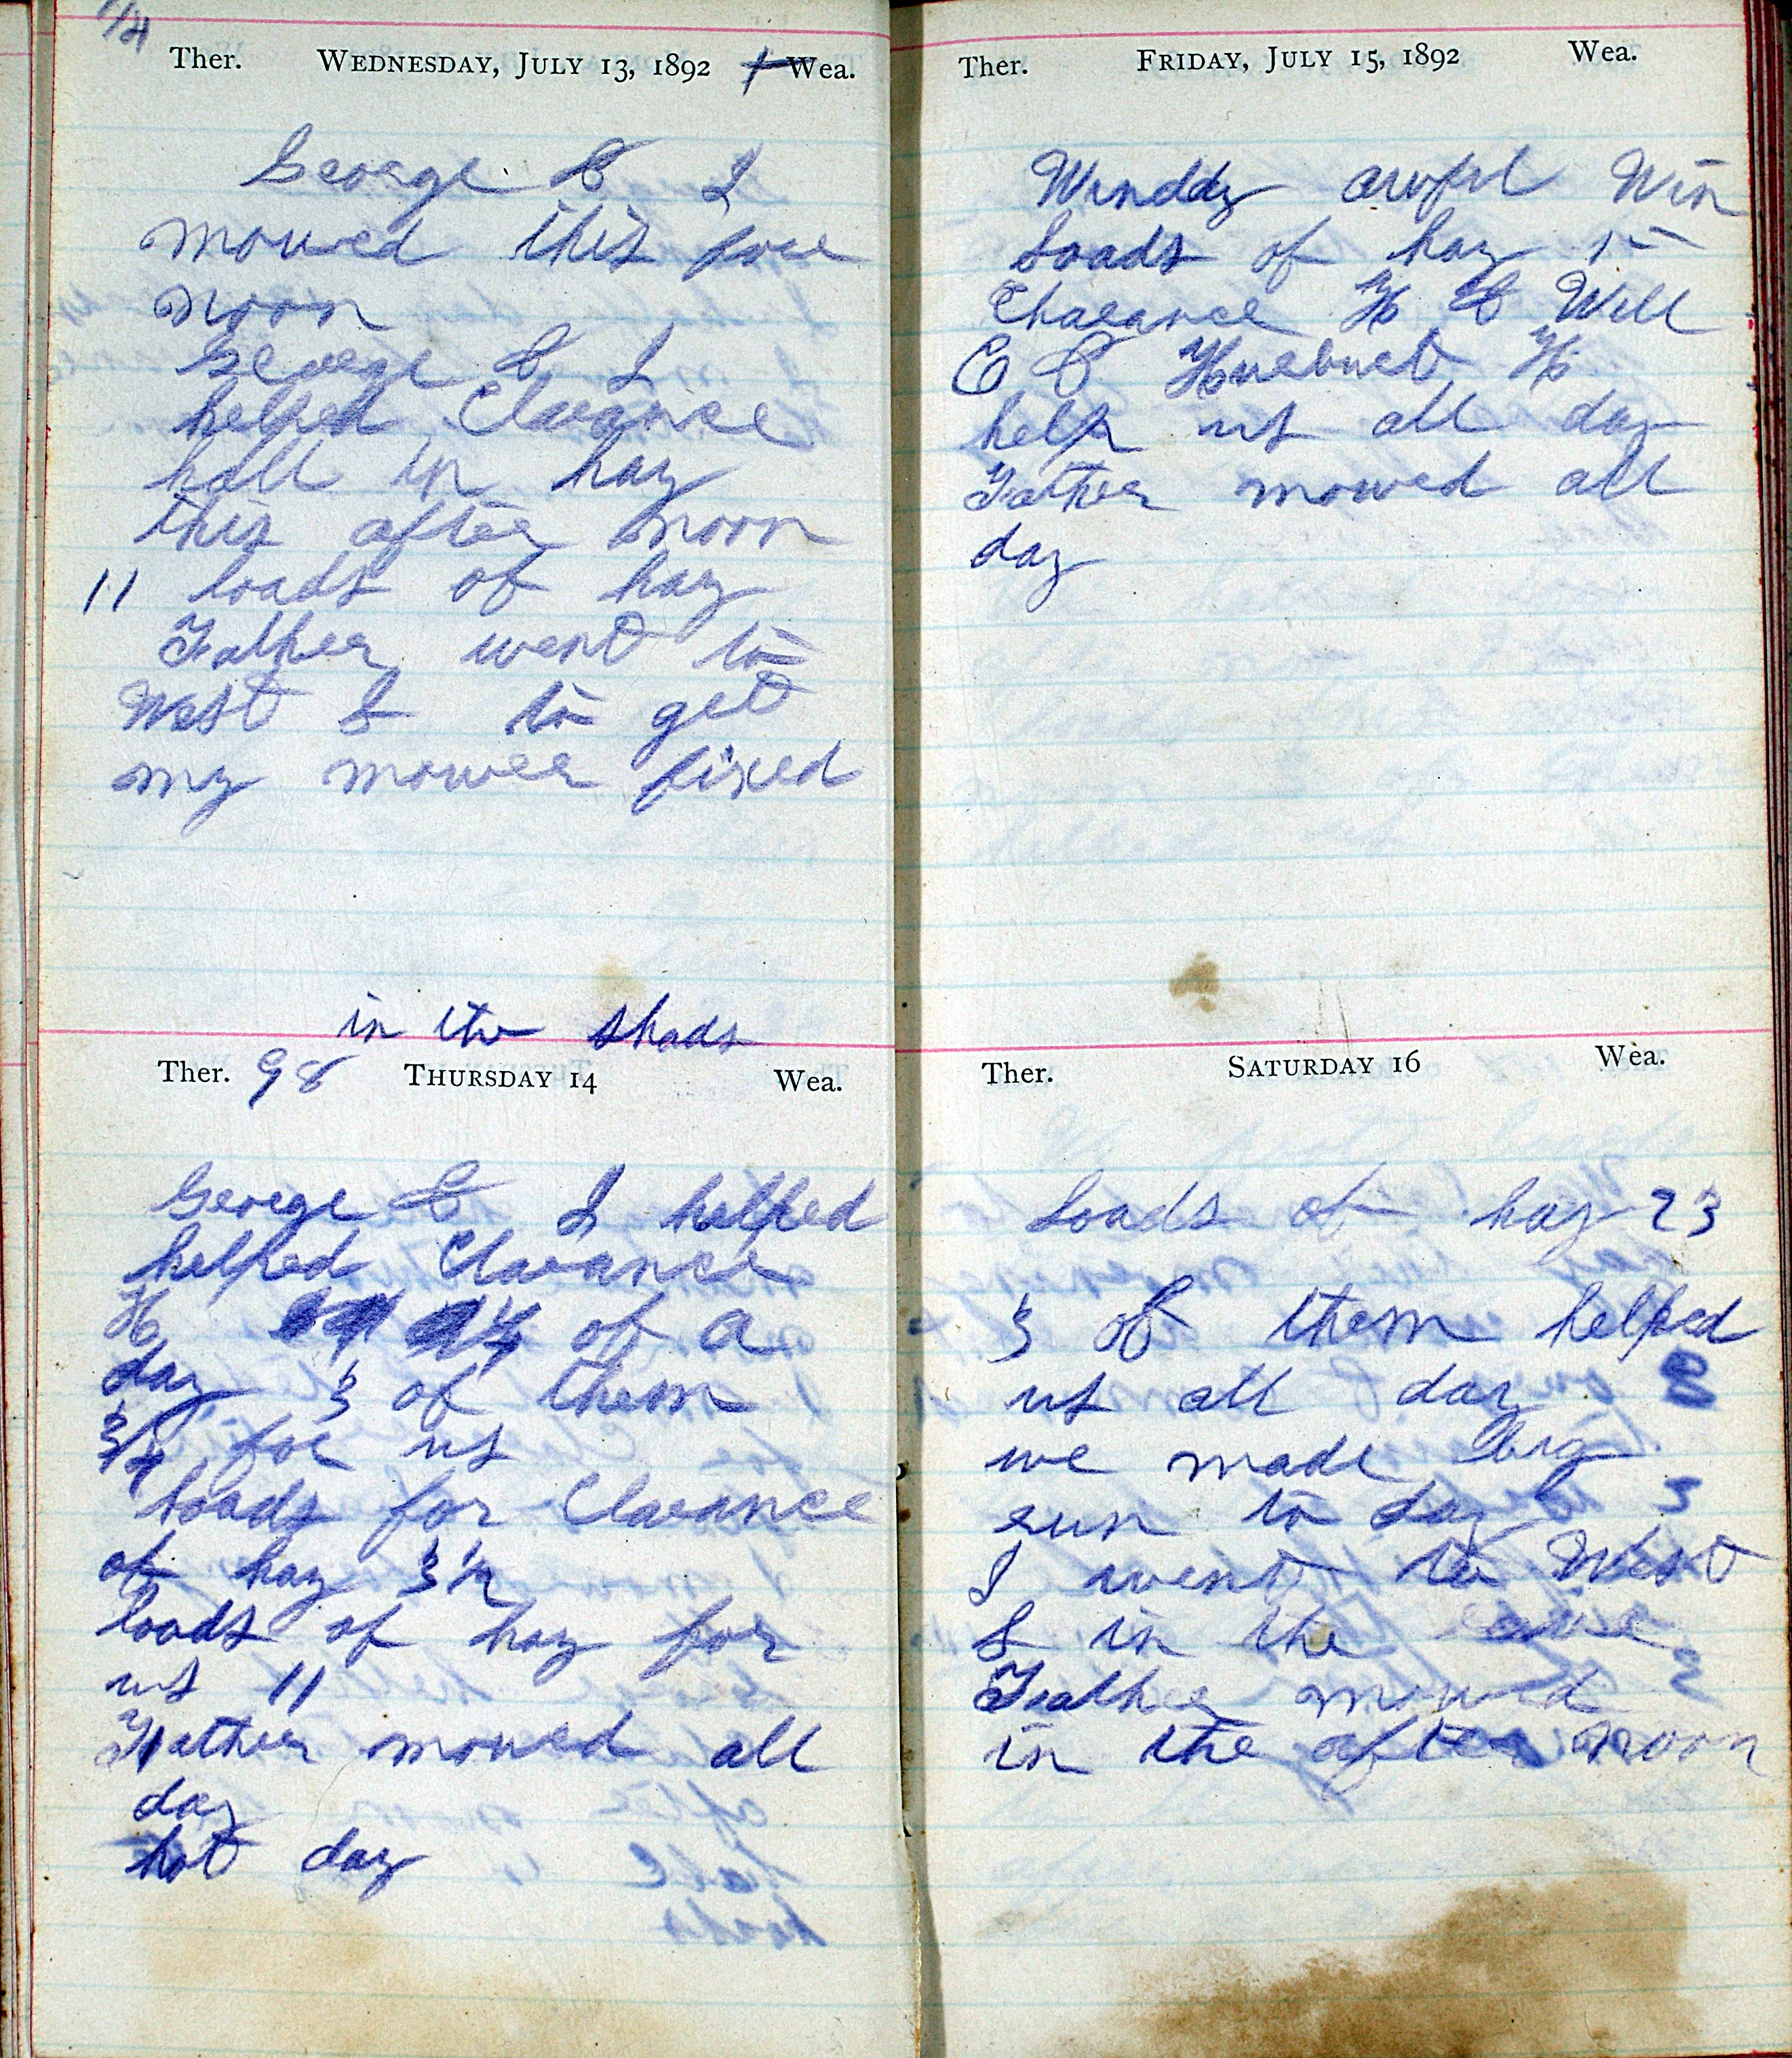 1/4
Ther. WEDNESDAY, JULY 13, 1892 Wea.
George & I
mowed this fore
noon
George & I
helped Clarance
hall in hay
this after noon
11 loads of hay
Father went to
West S to get
my mower fixed
in the shads
Ther. 98 THURSDAY 14 Wea.
George & I helped
helped Clarance
H of a
day 3 of them
3/4 for us
Loads for Clarance
of hay 3 1/2
loads of hay for
us 11
Father mowed all
day
hot day
Ther. FRIDAY, JULY 15, 1892 Wea.
Winddy awful Win
Loads of hay 15
Charance H & Will
E & Hurburt H
help us all day
Father mowed all
day
Ther. SATURDAY 16 Wea.
Loads of hay 23
3 of them helped
us all day
we made big
run to day
I went to West
S in the
Father mowed
in the after noon